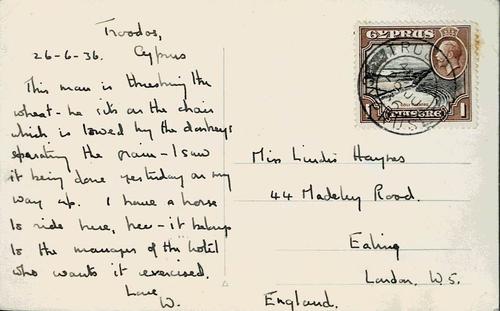 Troodos,
Cyprus
26-6-36.
This man is threshing the
wheat - he sits on the chair
which is towed by the donkeys
separating the grain - I saw
it being done yesterday on my
way up. I have a horse
to ride here, free - it belongs
to the manager of the hotel
who wants it exercised.
Love
W.
CYPRUS
1
1
Miss Haynes
44 Madeley Road.
Ealing
London. W.5.
England.